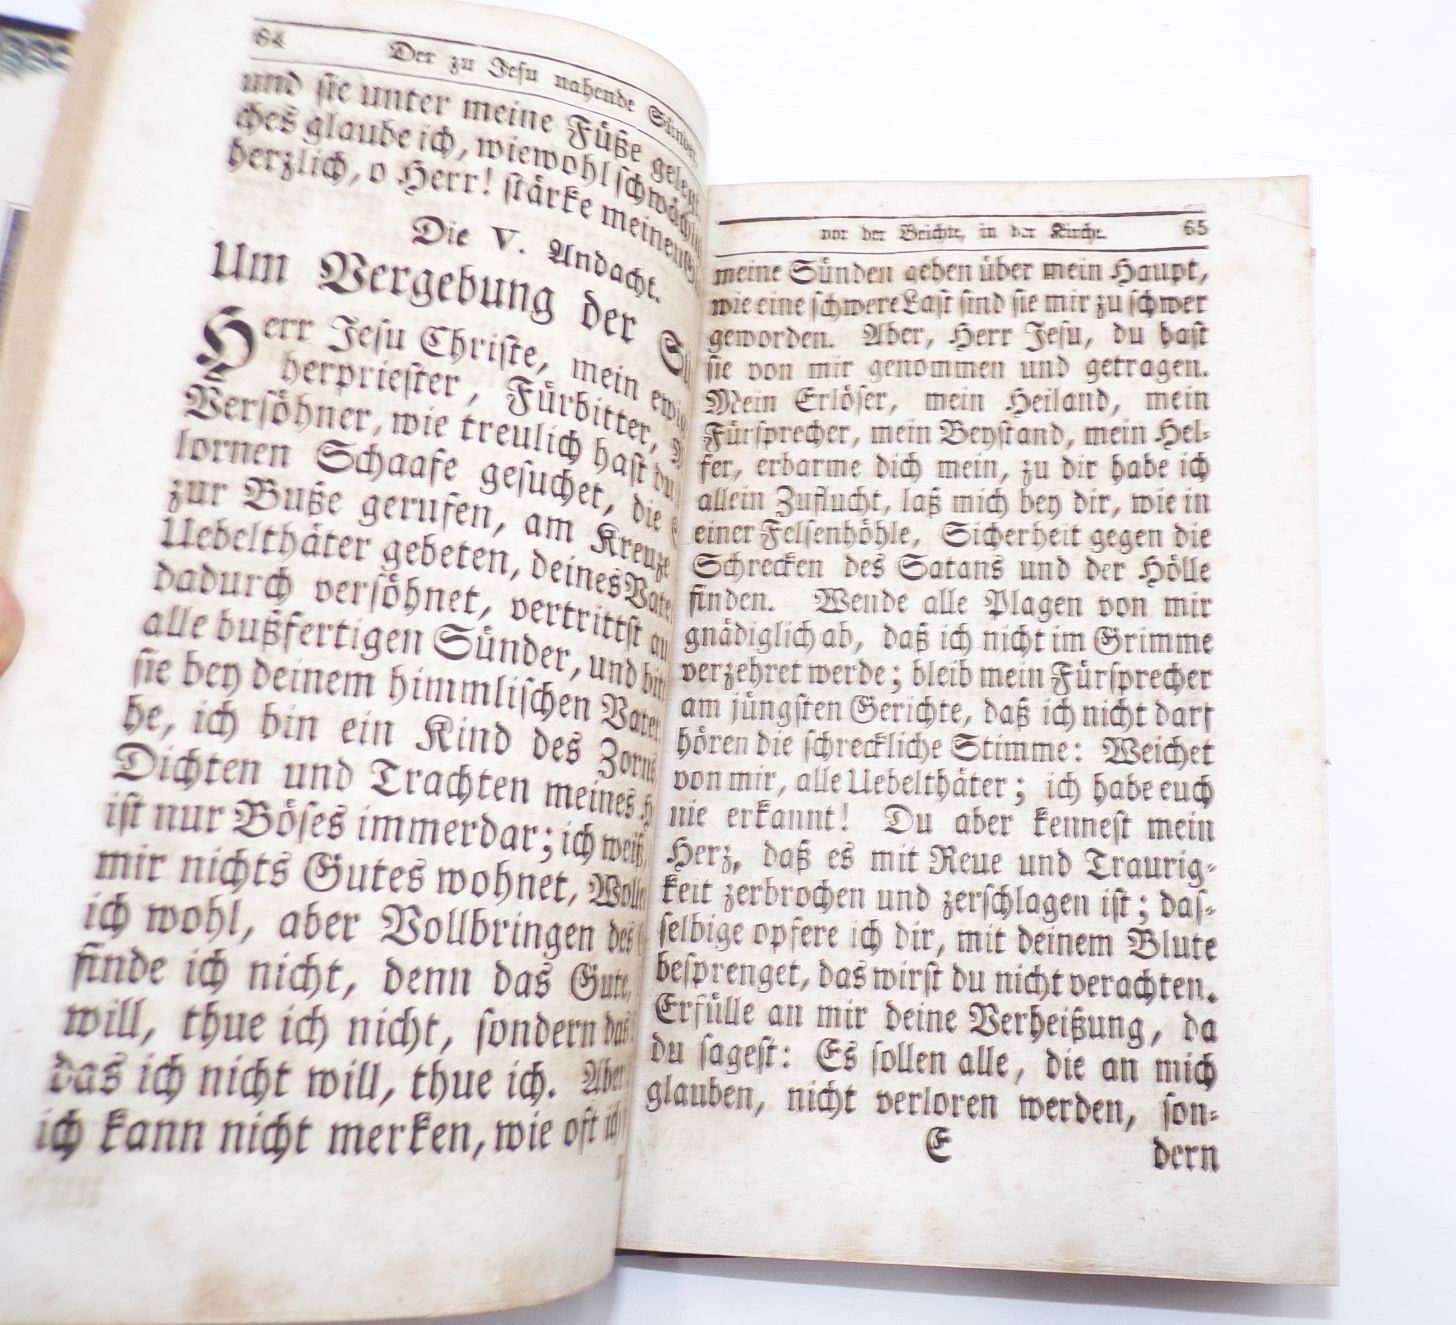 64 Der zu Jesu nahende Sünder,
und sie unter meine Füße gelegt.
ches glaube ich, wiewohl
herzlich, o Herr! stärke meinen
Die V. Andacht.
Um Vergebung der
Herr Jesu Christe, mein
herpriester, Fürbitter,
Versöhner, wie treulich hast du
lornen Schaafe gesuchet, die
zur Buße gerufen, am Kreuze
Uebelthäter gebeten, deines
dadurch versöhnet, vertrittst
alle bußfertigen Sünder, und
sie bey deinem himmlischen Vater
he, ich bin ein Kind des
Dichten und Trachten meines
ist nur Böses immerdar; ich weiß,
mir nichts Gutes wohnet,
ich wohl, aber Vollbringen des
finde ich nicht, denn das Gute,
will, thue ich nicht, sondern das
das ich nicht will, thue ich. Aber
ich kann nicht merken, wie oft ich
vor der Beichte, in der Kirche. 65
meine Sünden gehen über mein Haupt,
wie eine schwere Last sind sie mir zu schwer
geworden. Aber, Herr Jesu, du hast
sie von mir genommen und getragen.
Mein Erlöser, mein Heiland, mein
Fürsprecher, mein Beystand, mein Hel-
fer, erbarme dich mein, zu dir habe ich
allein Zuflucht, laß mich bey dir, wie in
einer Felsenhöhle, Sicherheit gegen die
Schrecken des Satans und der Hölle
finden. Wende alle Plagen von mir
gnädiglich ab, daß ich nicht im Grimme
verzehret werde; bleib mein Fürsprecher
am jüngsten Gerichte, daß ich nicht darf
hören die schreckliche Stimme: Weichet
von mir, alle Uebelthäter; ich habe euch
nie erkannt! Du aber kennest mein
Herz, daß es mit Reue und Traurig-
keit zerbrochen und zerschlagen ist; das-
selbige opfere ich dir, mit deinem Blute
besprenget, das wirst du nicht verachten.
Erfülle an mir deine Verheißung, da
du sagest: Es sollen alle, die an mich
glauben, nicht verloren werden, son-
E dern